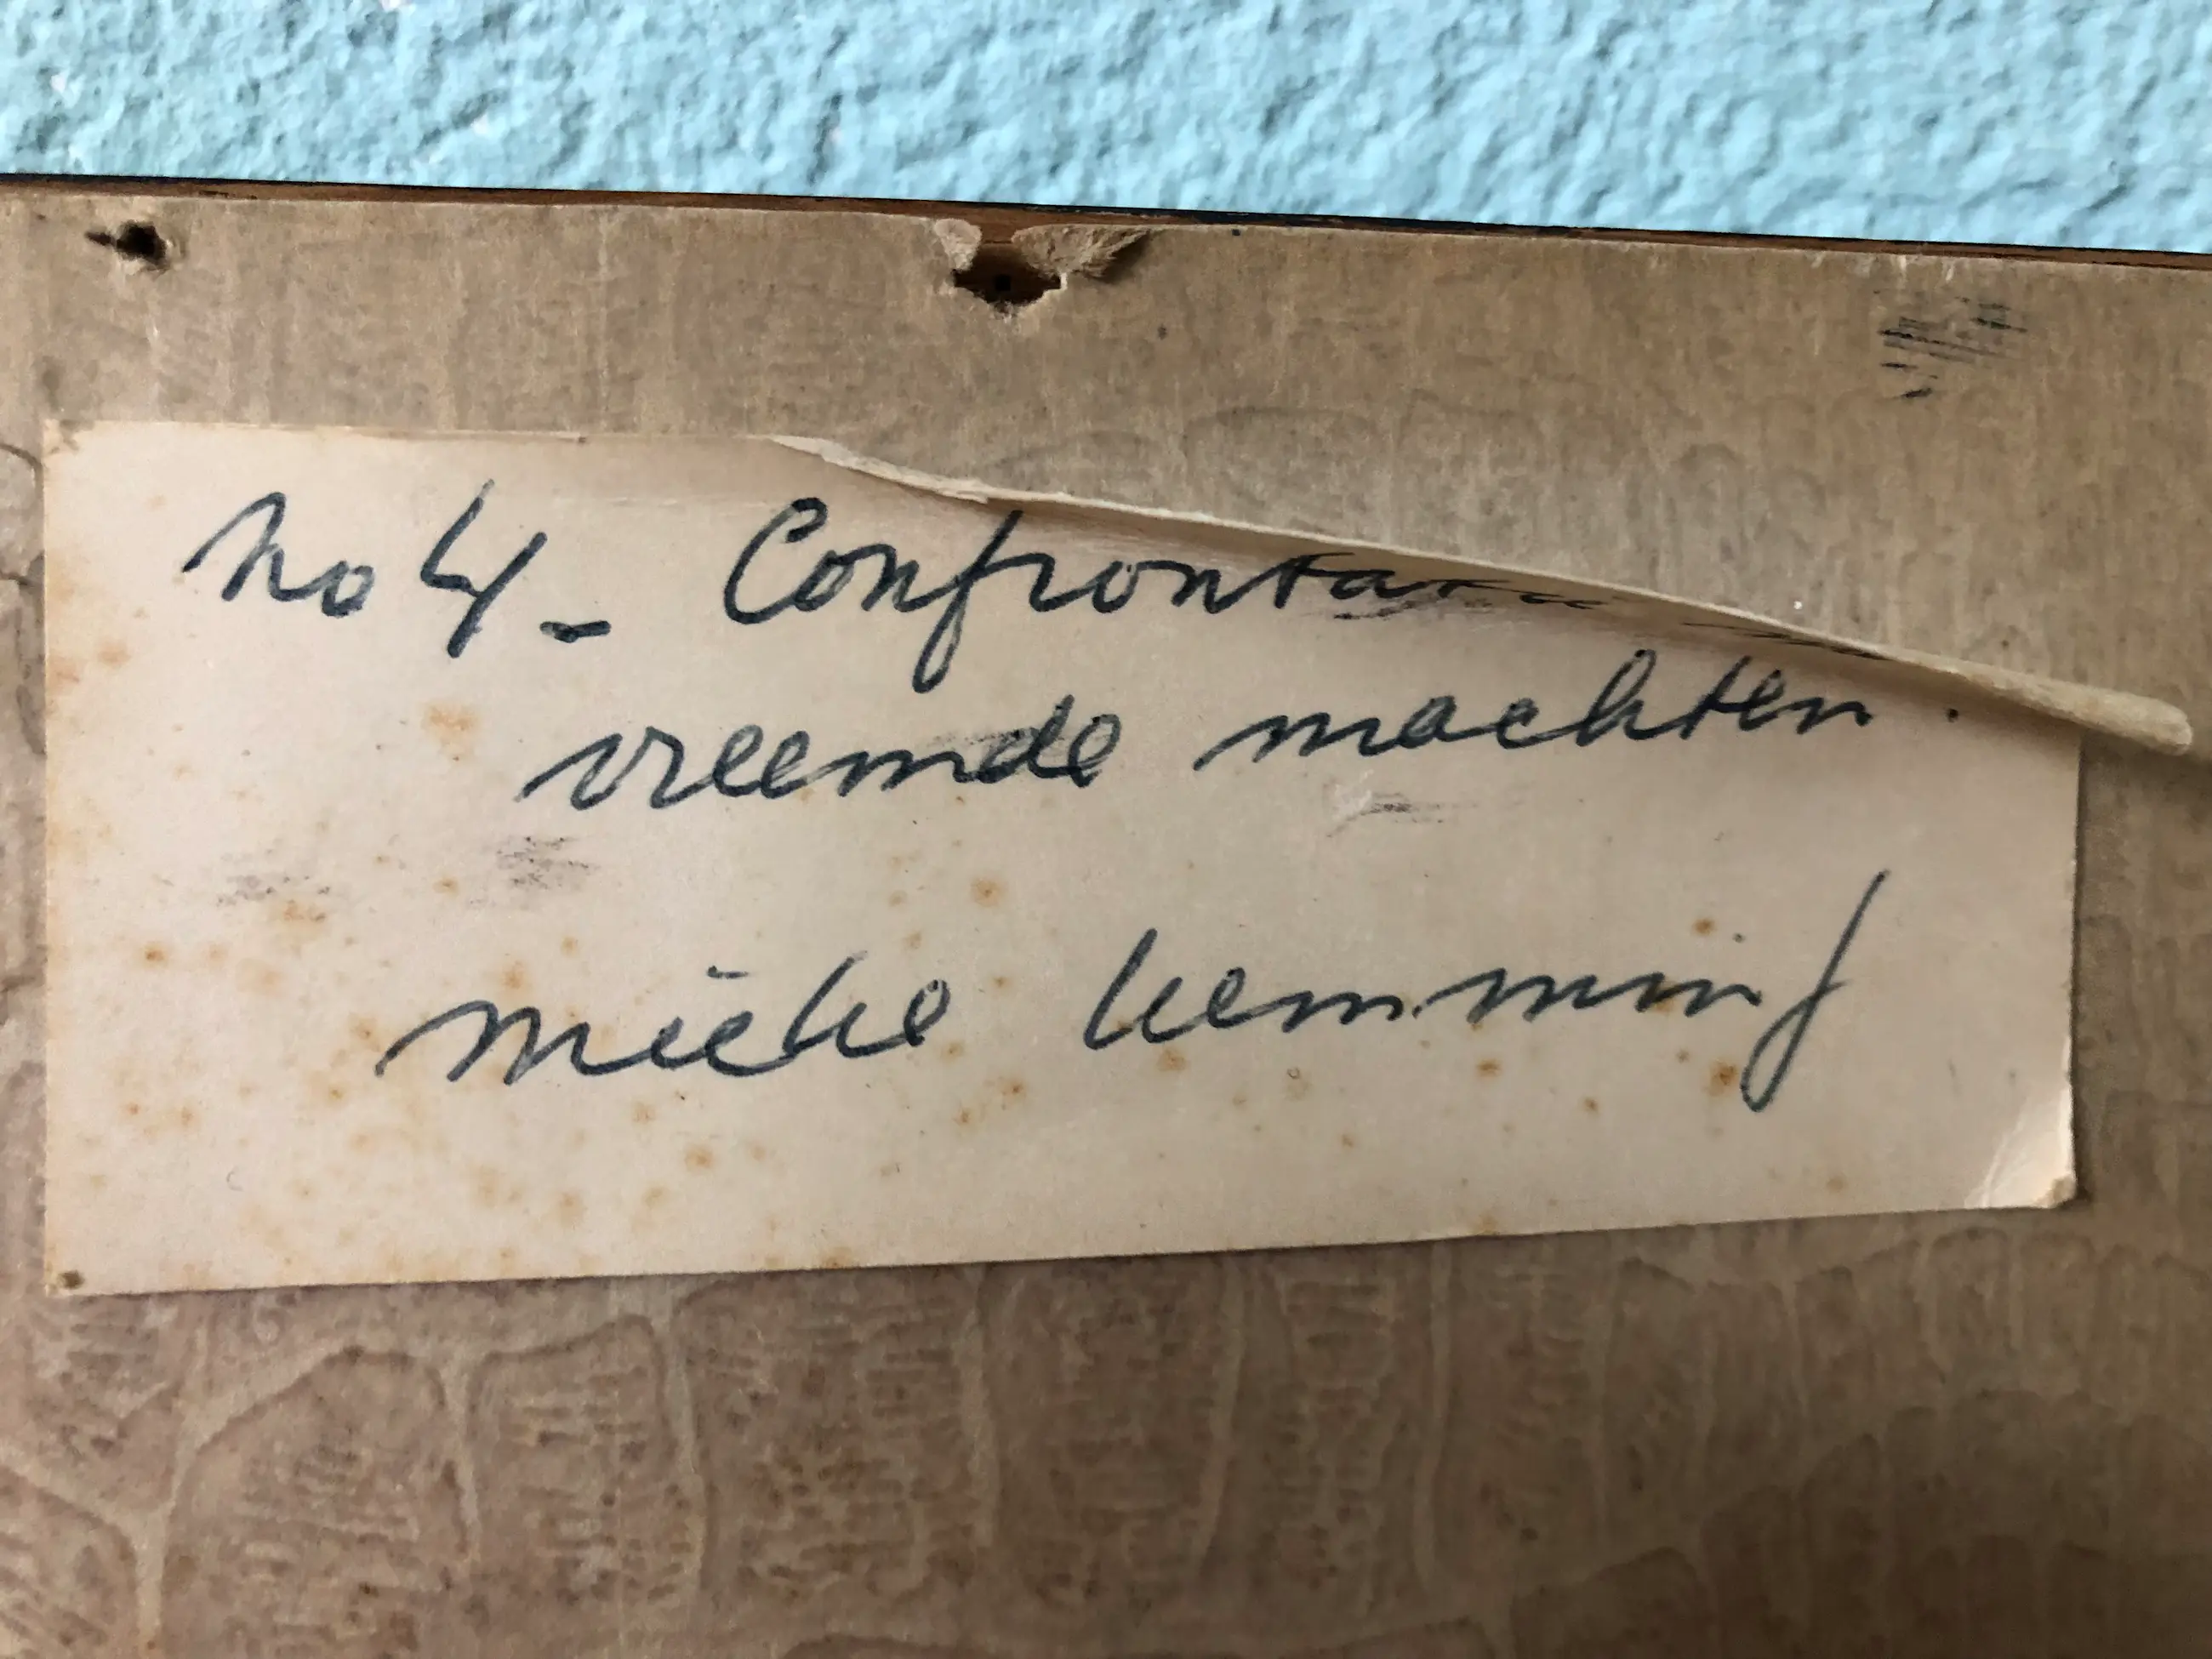 no 4 - Confronta
vreemde machten.
mieke hemming